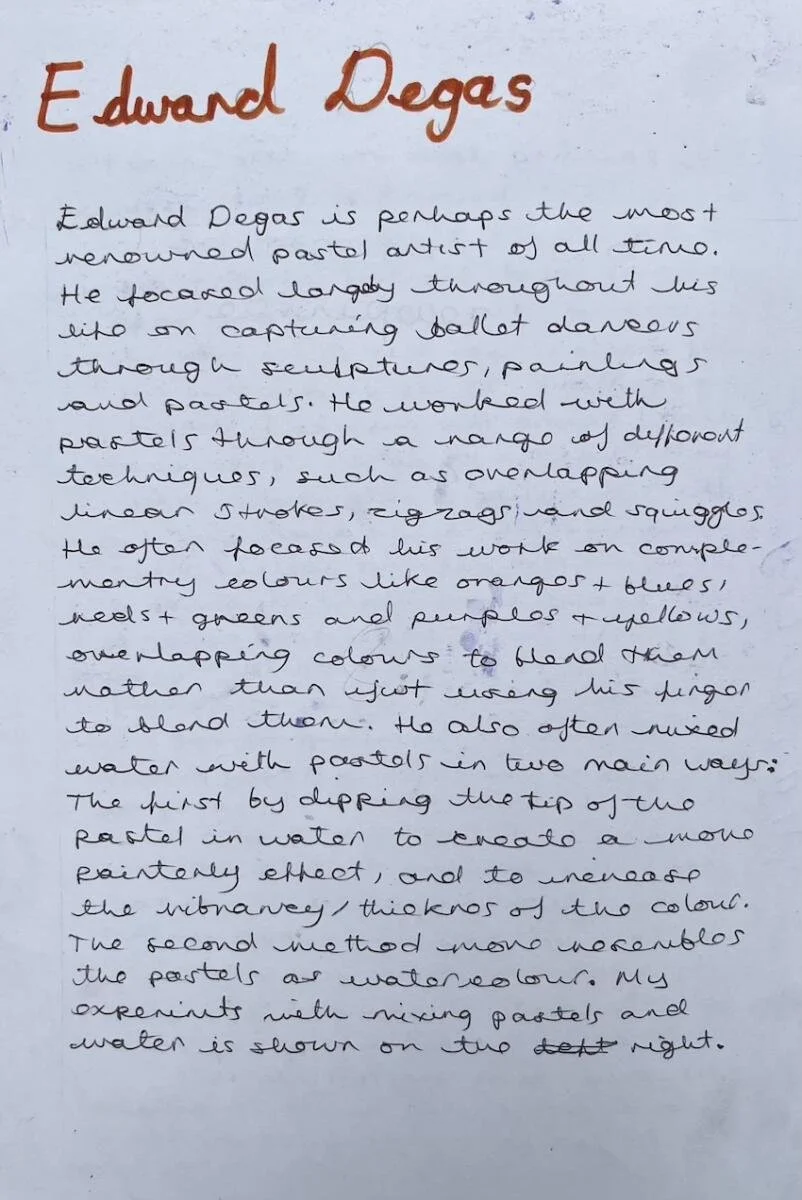 Edward Degas
Edward Degas is perhaps the most
renowned pastel artist of all time.
He focased largely throughout his
life on capturing ballet dancers
through sculptures, paintings
and pastels. He worked with
pastels through a range of different
techniques, such as overlapping
linear strokes, zigzags, and squiggles.
He often focased his work on comple-
mentry colours like oranges + blues,
reds + greens and purples + yellows,
overlapping colours to blend them
rather than just using his finger
to blend them. He also often mixed
water with pastels in two main ways:
The first by dipping the tip of the
pastel in water to create a more
painterly effect, and to increase
the vibrancy/thicknes of the colour.
The second method more resembles
the pastels as watercolour. My
experimts with mixing pastels and
water is shown on the left right.